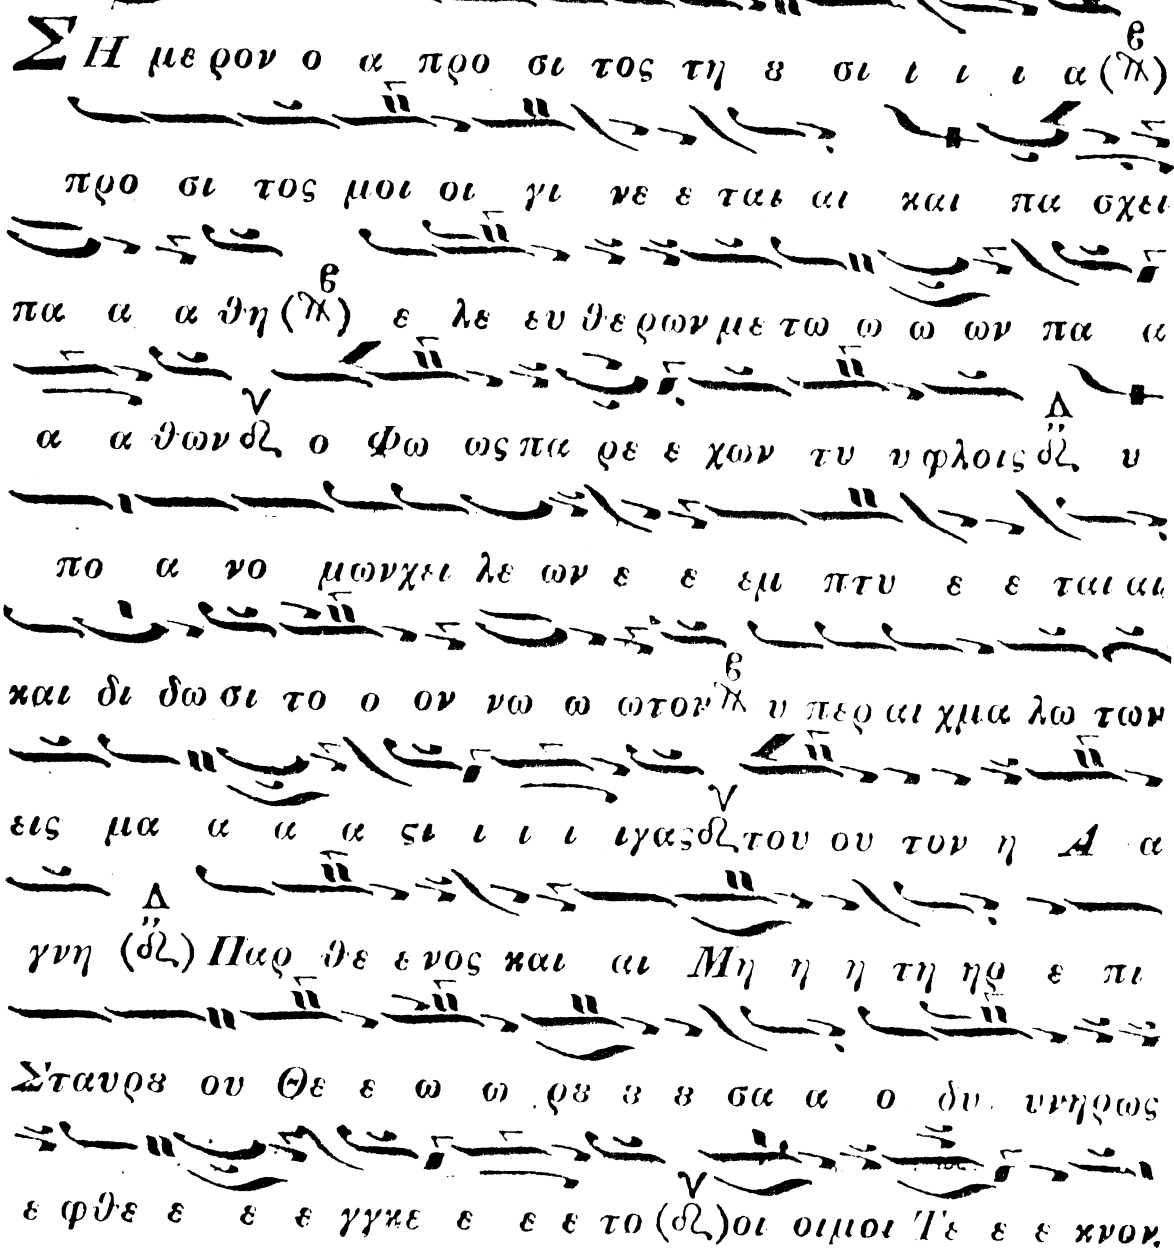 ΣΗ με ρον ο α προ σι τος τη ȣ σι ι ι ι α
προ σι τος μοι οι γι νε ε ται αι και πα σχει
πα α α θη ε λε ευ θε ρων με τω ω ω ων πα α
α α θων ο Φω ως πα ρε ε χων τυ υ φλοις υ
πο α νο μων χει λε ων ε ε εμ πτυ ε ε ται αι
και δι δω σι το ο ον νω ω ω τον υ περ αι χμα λω των
εις μα α α α ϛι ι ι ι ιγας του ου τον η Α α
γνη Παρ θε ε νος και αι Μη η η τη ηρ ε πι
Σταυρȣ ου Θε ε ω ω ρȣ ȣ ȣ σα α ο δυ υνηρως
ε φθε ε ε ε γγκε ε ε ε το οι οιμοι Τε ε ε κνον.